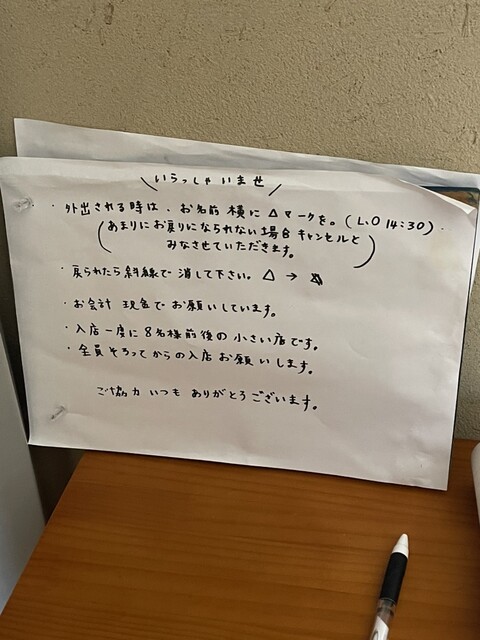 いらっしゃいませ
・外出される時は、お名前 横に △ マークを。(L.O 14:30)
(あまりにお戻りになられない場合 キャンセルと
みなさせていただきます。)
・戻られたら斜線で 消して下さい。 △ →
・お会計 現金で お願いしています。
・入店一度に 8名様前後の 小さい店です。
・全員そろってからの入店 お願いします。
ご協力いつも ありがとうございます。